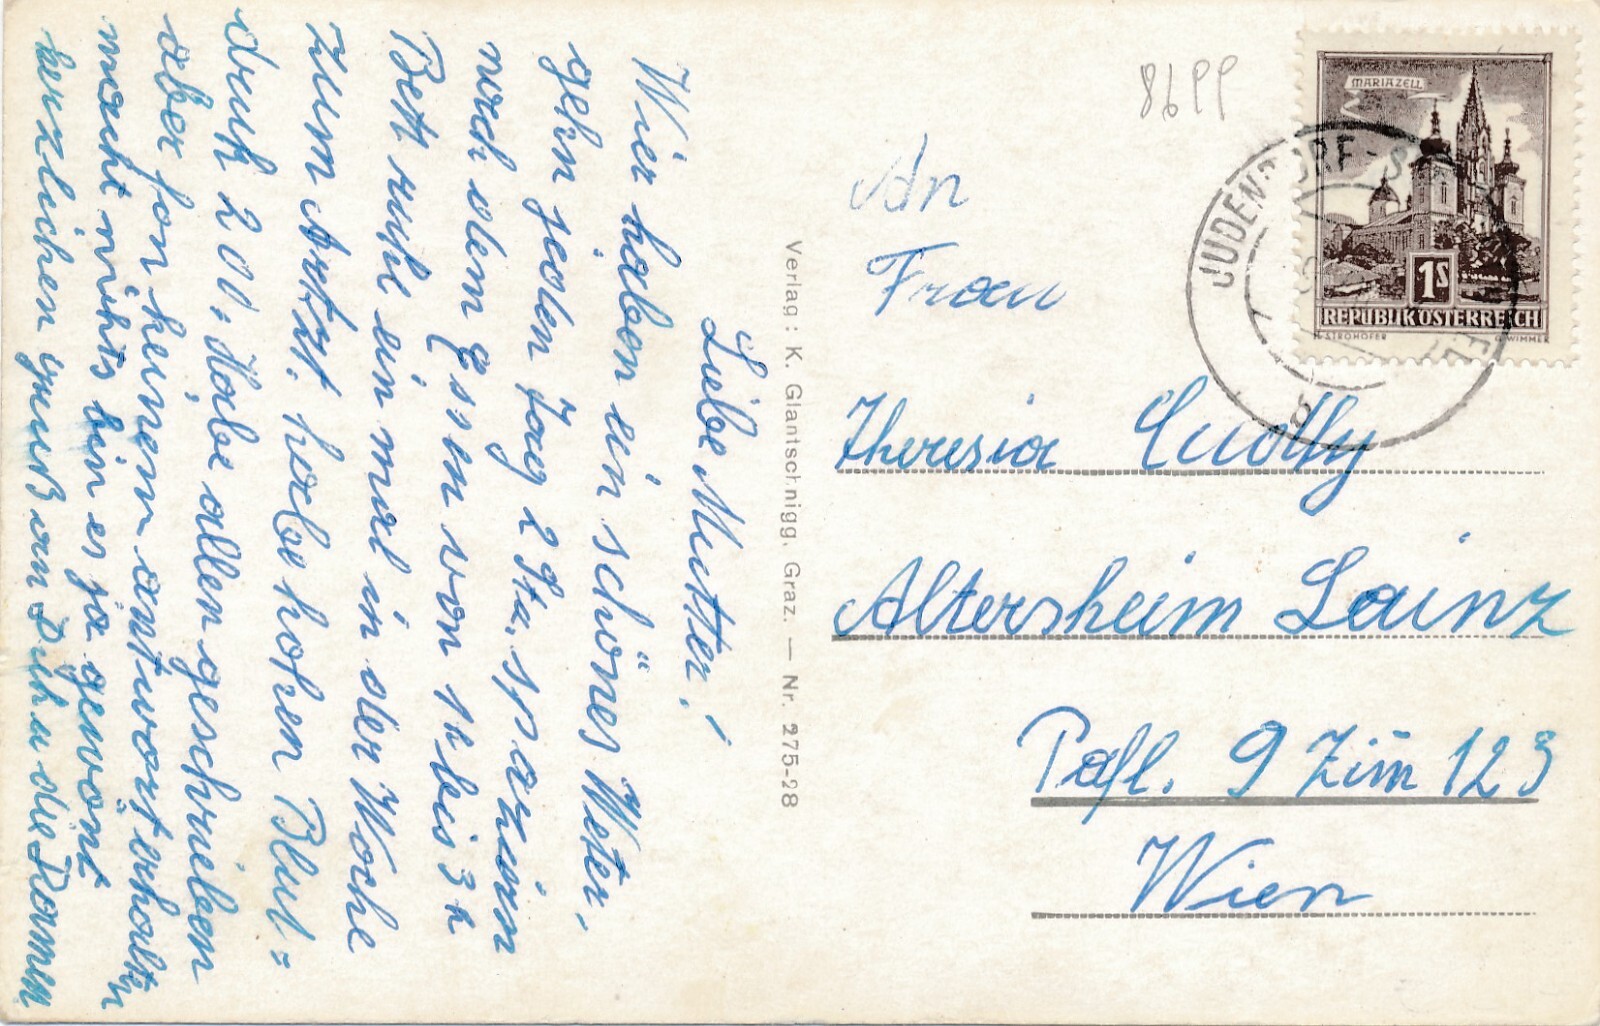 Liebe Mutter!
Wier haben ein schönes Weter,
gehn jeden Tag 2 Stu. spazirn
nach dem Essen von 1h bis 3h
Bett ruhe ein mal in der Woche
zum Artzt. habe hohen Blut=
druk 200, Habe allen geschrieben
aber fon keinem antwort erhalten
macht nichts bin es ja gewönt
herzlichen Gruß an Dich u die Damen
Verlag: K. Glantschnigg, Graz. — Nr. 275-28
MARIAZELL
1S
REPUBLIK ÖSTERREICH
STROHOFER
G. WIMMER
JUDENDORF-S
An
Frau
Theresia
Altersheim Lainz
Pafl. 9 Zim 123
Wien